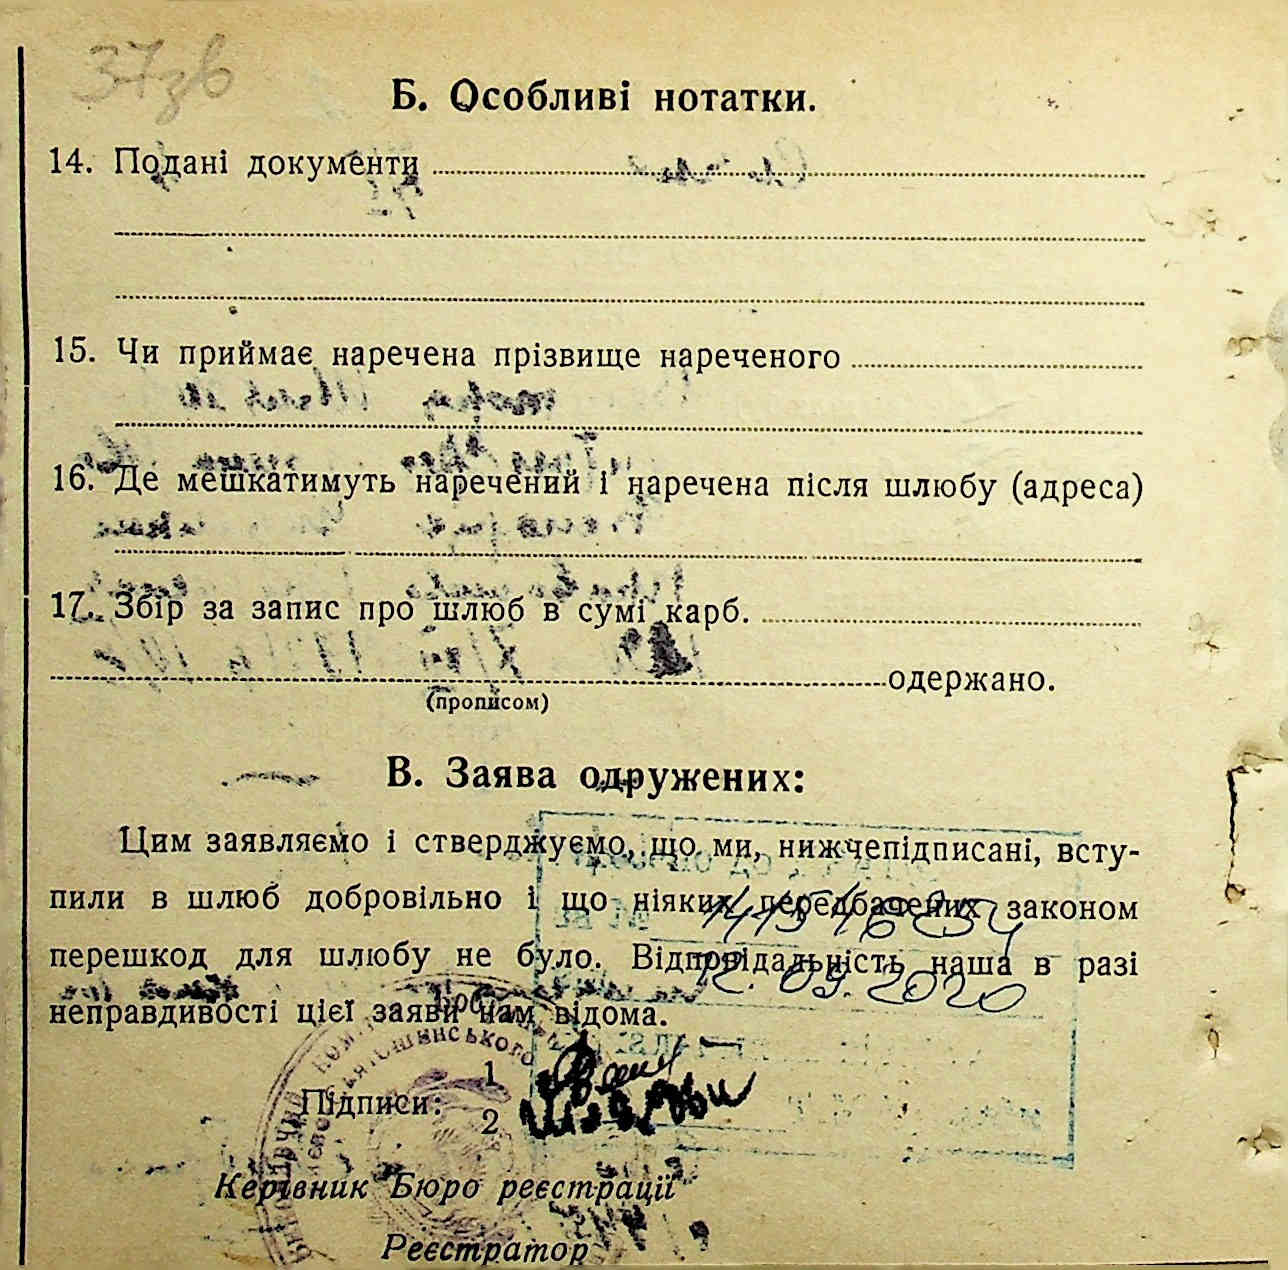 37зв
Б. Особливі нотатки.
14. Подані документи
15. Чи приймає наречена прізвище нареченого
16. Де мешкатимуть наречений і наречена після шлюбу (адреса)
17. Збір за запис про шлюб в сумі карб.
одержано.
(прописом)
В. Заява одружених:
Цим заявляємо і стверджуємо, що ми, нижчепідписані, всту-
пили в шлюб добровільно і що ніяких передбачених законом
перешкод для шлюбу не було. Відповідальність наша в разі
12.09.2020
неправдивості цієї заяви нам відома.
1
Підписи:
2
Керівник Бюро реєстрації
Реєстратор